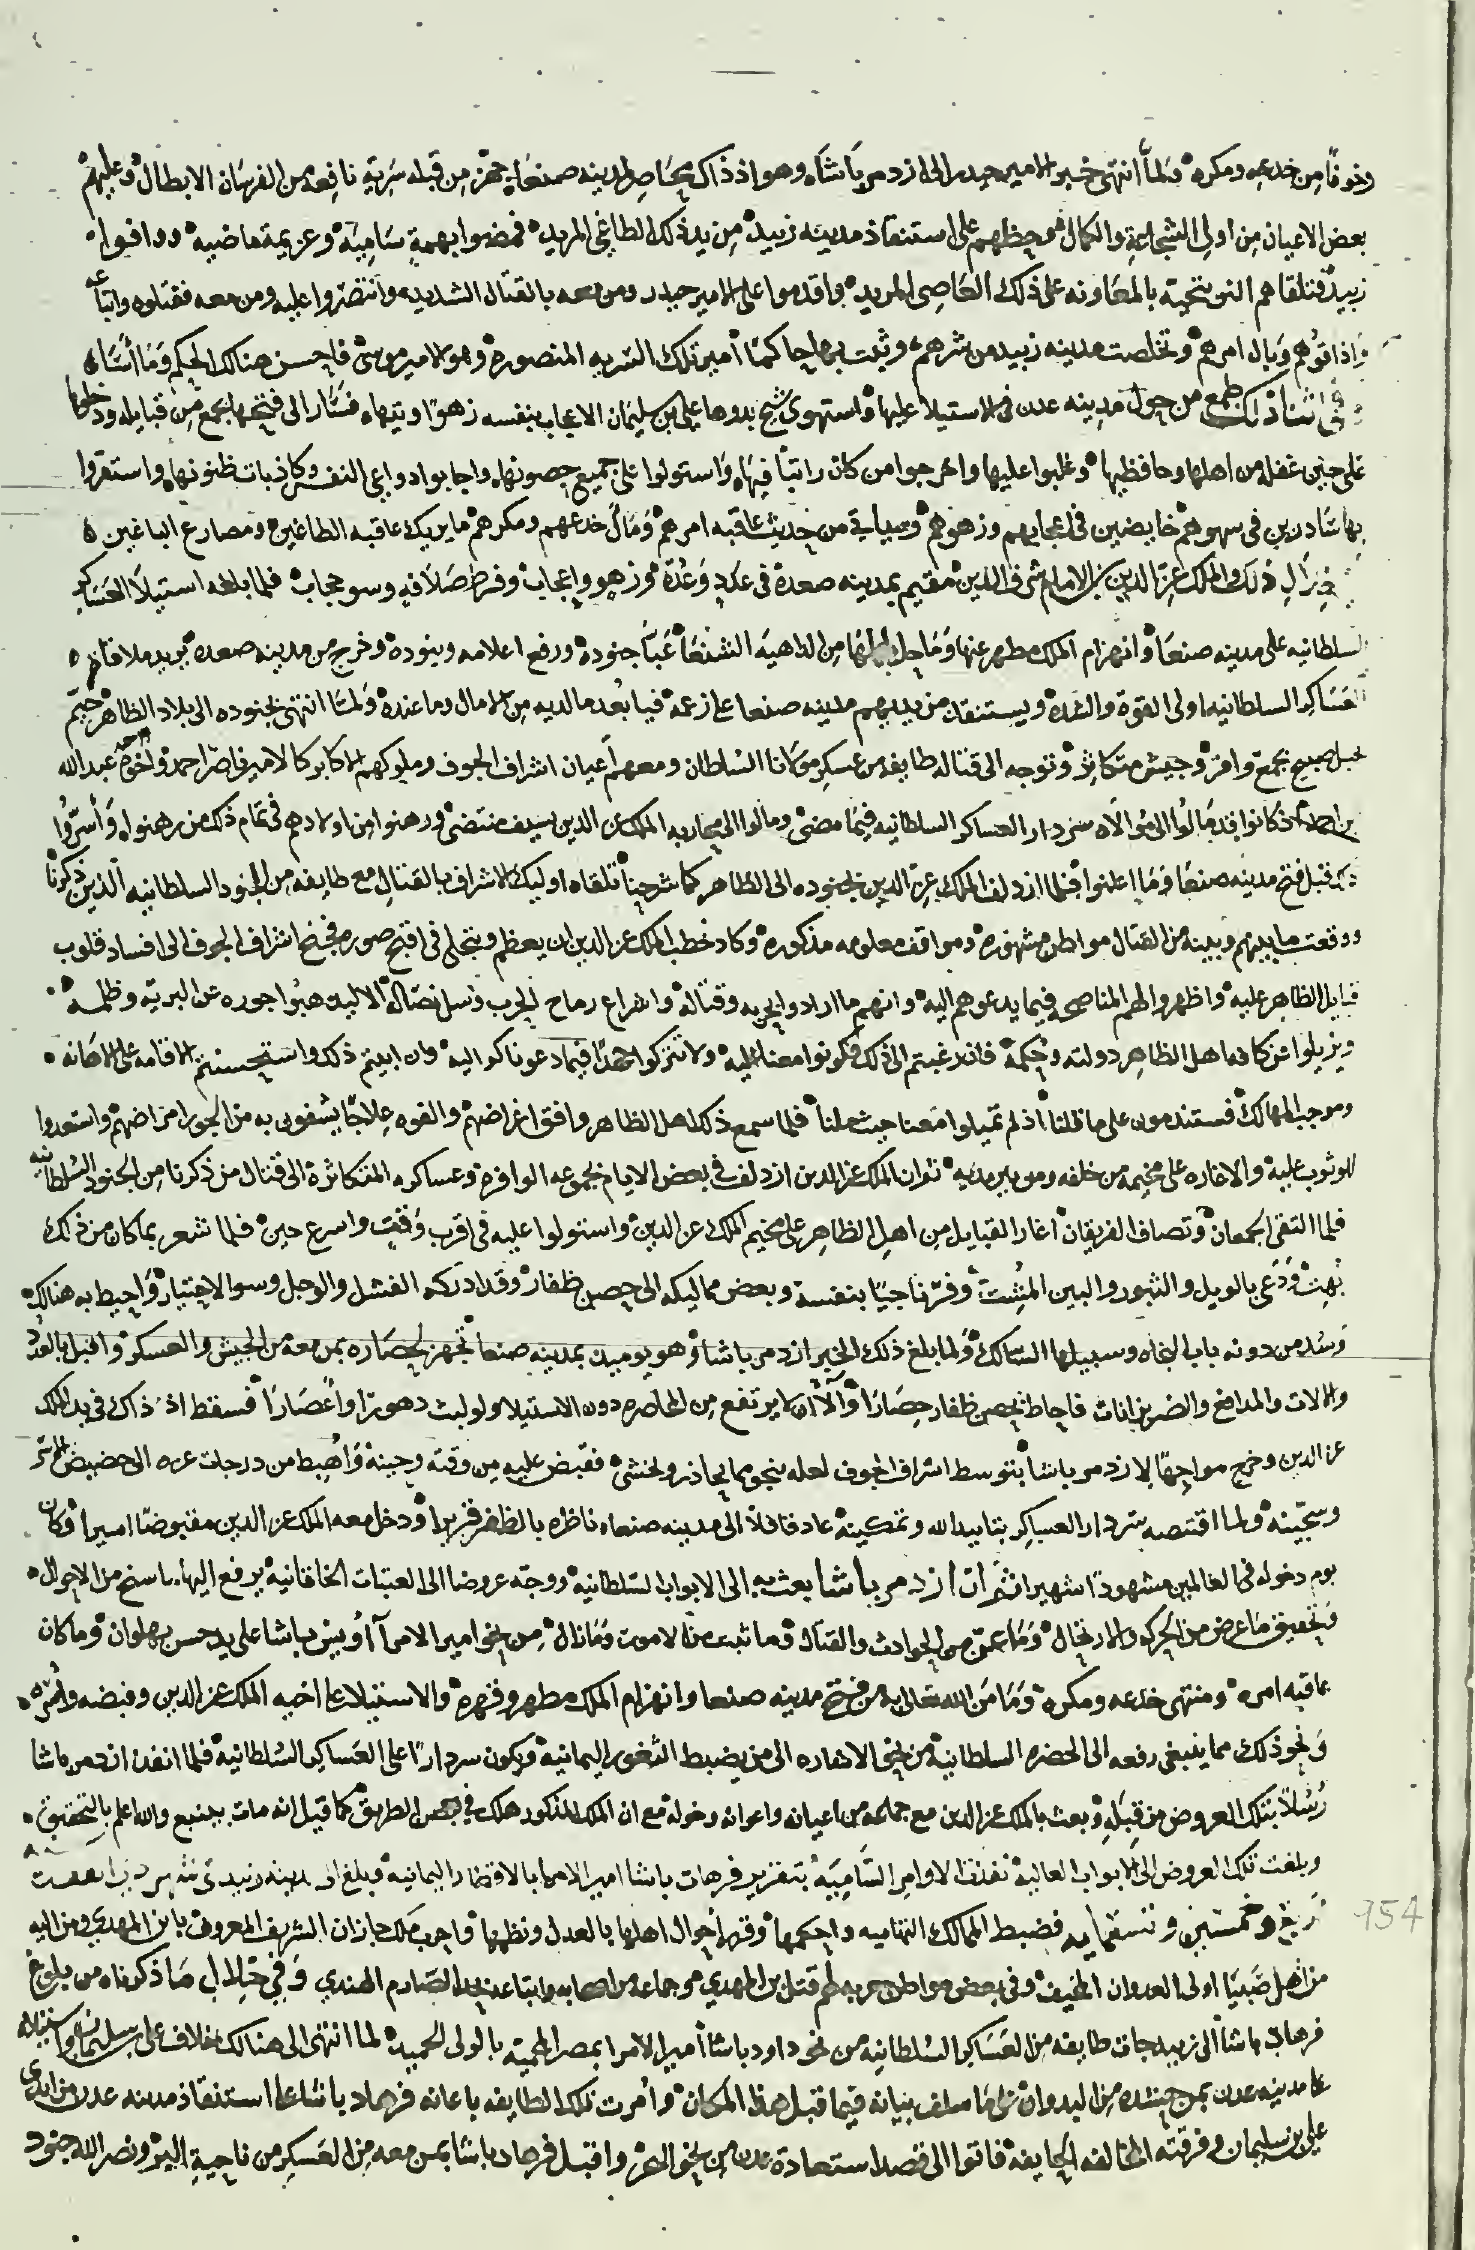 وخوفا من خدعه ومكره ولما انتهى خبر الامير حيدر الى ازدمر باشاه وهو اذ ذاك محاصر لمدينه صنعا جهز من قبله سريه نافعه من الفرسان الابطال وعليهم
بعض الاعيان من اولى الشجاعة والكمال وحظهم على استنقاذ مدينه زبيد من يد ذلك الطاغى المريد فمضوا بهمة ساميه وعزيمة ماضيه ووافوا
زبيد فتلقاهم النويتجيه بالمعاونه على ذلك العاصى المريد واقدموا على الامير حيدر ومن معه بالقتال الشديد وانتصروا عليه ومن معه فقتلوه واتباعه
واذاقوهم وبال امرهم وتخلصت مدينه زبيد من شرهم وثبت بها حاكما امير تلك السريه المنصوره وهو الامير موسى فاحسن هنالك الحكم وما اساء
وفى اثنا ذلك طمع من حول مدينه عدن فى الاستيلا عليها واستهوى شيخ بدوها على بن سليمان الاعجاب بنفسه زهوا وتيها فسار الى فتحها بجمع من قبايله ودخلها
على حين غفله من اهلها وحافظيها وغلبوا عليها واخرجوا من كان راتبا فيها واستولوا على جميع حصونها واجابوا دواعى النفس وكاذبات ظنونها واستقروا
بها سادرين فى سهوهم خايضين فى اعجابهم وزهوهم وسياتى من حديث عاقبه امرهم ومال خدعهم ومكرهم ما يريك عاقبه الطاغين ومصارع الباغين
ذلك والملك عز الدين بن الامام شرف الدين مقيم بمدينه صعدة فى عدد وعدة وزهو واعجاب وفرط صلافه وسو حجاب فلما بلغه استيلا العساكر
السلطانيه على مدينه صنعا وانهزام الملك مطهر عنها وما حل باهلها من الداهية الشنعا عبا جنوده ورفع اعلامه وبنوده وخرج من مدينه صعده يريد ملاقاة
العساكر السلطانيه اولى القوة والشده ويستنقذ من يديهم مدينه صنعا على زعمه فيا بعد ما لديه من الامال وما عنده ولما انتهى بجنوده الى بلاد الظاهر خيم
بجمع وافر وجيش متكاثر وتوجه الى قتاله طايفه من عسكر مولانا السلطان ومعهم اعيان اشراف الجوف وملوكهم الاكابر كالامير ناصر احمد واخوه عبد الله
بن احمد فكانوا قد مالوا الى موالاه سردار العساكر السلطانيه فيما مضى ومالوا الى محاربه الملك عز الدين بسيف منتضى ورهنوا من اولادهم فى تمام ذلك من رهنوا واسروا
ذلك قبل فتح مدينه صنعا وما اعلنوا فلما ازدلف الملك عز الدين بجنوده الى الظاهر كما شرحنا تلقاه اوليك الاشراف بالقتال مع طايفه من الجنود السلطانيه الذين ذكرنا
ووقعت ما بينهم وبينه من القتال مواطن مشهوره ومواقف معلومه مذكوره وكاد خطب الملك عز الدين ان يعظم ويتجلى فى اقبح صوره فجنح اشراف الجوف الى افساد قلوب
قبايل الظاهر عليه واظهروا لهم المناصحه فيما يدعوهم اليه وانهم ما ارادوا بحربه وقتاله واشراع رماح الحرب وسل نصاله الا ليذهبوا جوره عن البريه وظلمه
ويزيلوا عن كافه اهل الظاهر دولته وحكمه فان رغبتم الى ذلك فكونوا معنا عليه ولا تتركوا جهدا فيما دعوناكم اليه وان ابيتم ذلك واستحسنتم الاقامه على الاهانه
وموجب المهالك فستندمون على ما قلنا اذ لم تميلوا معنا حيث ملنا فلما سمع ذلك اهل الظاهر وافق اغراضهم والفوه علاجا يشفون به من الجور امراضهم واستعدوا
للوثوب عليه والاغاره على مخيمه من خلفه ومن بين يديه ثم ان الملك عز الدين ازدلف فى بعض الايام بجموعه الوافره وعساكره المتكاثرة الى قتال من ذكرنا من الجنود السلطانيه
فلما التقى الجمعان وتصاف الفريقان اغار القبايل من اهل الظاهر على مخيم الملك عز الدين واستولوا عليه فى اقرب وقت واسرع حين فلما شعر بما كان من ذلك
بهت ودعى بالويل والثبور والبين المشت وفر ناجيا بنفسه وبعض مماليكه الى حصن ظفار وقد ادركه الفشل والوجل وسو الاختيار واحيط به هنالك
وسد من دونه باب النجاه وسبيلها السالك ولما بلغ ذلك الخبر ازدمر باشا وهو يوميذ بمدينه صنعا تجهز لحصاره بمن معه من الجيش والعسكر واقبل بالعدد
والالات والمدافع والضربزانات فاحاط بحصن ظفار حصارا والا ان لا يرتفع من المحاصره دون الاستيلا ولو لبث دهورا واعصارا فسقط اذ ذاك فى يد الملك
عز الدين وخرج مواجها لازدمر باشا بتوسط اشراف الجوف لعله ينجو مما يحاذر ويخشى فقبض عليه من وقته وحينه واهبط من درجات عزه الى حضيض
وسجينه ولما اقتنصه سردار العساكر بتاييد الله وتمكينه عاد قافلا الى مدينه صنعا ناظره بالظفر قريرا ودخل معه الملك عز الدين مقبوضا اسيرا وكان
يوم دخوله فى العالمين مشهودا شهيرا ثم ان ازدمر باشا بعث به الى الابواب السلطانيه ووجه عروضا الى العتبات الخاقانيه يرفع اليها ما سنح من الاحوال
وتحقيق ما عرض من الحركه والارتحال وما عن من الحوادث والقتال وما ثبت من الامور وما زال من نحو امير الامرا اويس باشا على يد حسن بهلوان وما كان
عاقبه امره ومنتهى خدعه ومكره وما من الله تعالى به من فتح مدينه صنعا وانهزام الملك مطهر وقهره والاستيلا على اخيه الملك عز الدين وقبضه واسره
ونحو ذلك مما ينبغى رفعه الى الحضره السلطانيه من نحو الاشاره الى من يضبط الثغور اليمانيه ويكون سردارا على العساكر السلطانيه فلما انفذ ازدمر باشا
رسلا بتلك العروض من قبله وبعث بالملك عز الدين مع جماعه من اعيانه واعوانه وخوله مع ان الملك المذكور هلك فى بعض الطريق كما قيل انه مات بينبع والله اعلم بالتحقيق
وبلغت تلك العروض الى الابواب العاليه نفذت الاوامر الساميه بتقرير فرهات باشا امير الامرا بالاقطار اليمانيه فبلغ الى مدينه زبيد فى شهر
وخمسين وتسعمايه فضبط الممالك التهاميه واحكمها وقرر احوال اهلها بالعدل ونظمها وحارب ملك جازان الشريف المعروف بابن المهدى ومن اليه
من اهل صبيا اولى العدوان المخيف وفى بعض مواطن حربه لهم قتل ابن المهدي وجماعه من اصحابه واتباعه بحد الصارم الهندي وفى خلال ما ذكرناه من بلوغ
فرهات باشا الى زبيد جات طايفه من العساكر السلطانيه من نحو داود باشا امير الامرا بمصر المحميه بالولى الحميد لما انتهى الى هنالك خلاف على بن سليمان واستيلاه
على مدينه عدن بمن حشده من البدوان على ما سلف بيانه فيما قبل هذا المكان وامرت تلك الطايفه باعانه فرهاد باشا على استنقاذ مدينه عدن من ايدى
على بن سليمان وفرقته المخالفه الخايفه فاتوا الى قصد استعادة عدن من نحو البحر واقبل فرهاد باشا بمن معه من العسكر من ناحية البر ونصر الله جنود
954